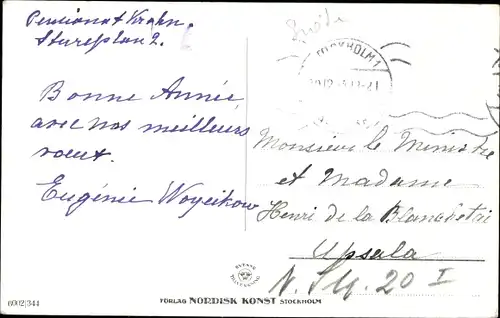 Pensionat Krahn.
Stureplan 2.
Bonne Année
avec nos meilleurs
voeux.
Eugénie Woyeikow
STOCKHOLM 1
Monsieur le Ministre
et Madame
Henri de la Blanchetai
Upsala
N. Slg. 20 I
SVENSK
TILLVERKNING
FÖRLAG NORDISK KONST STOCKHOLM
6902/344